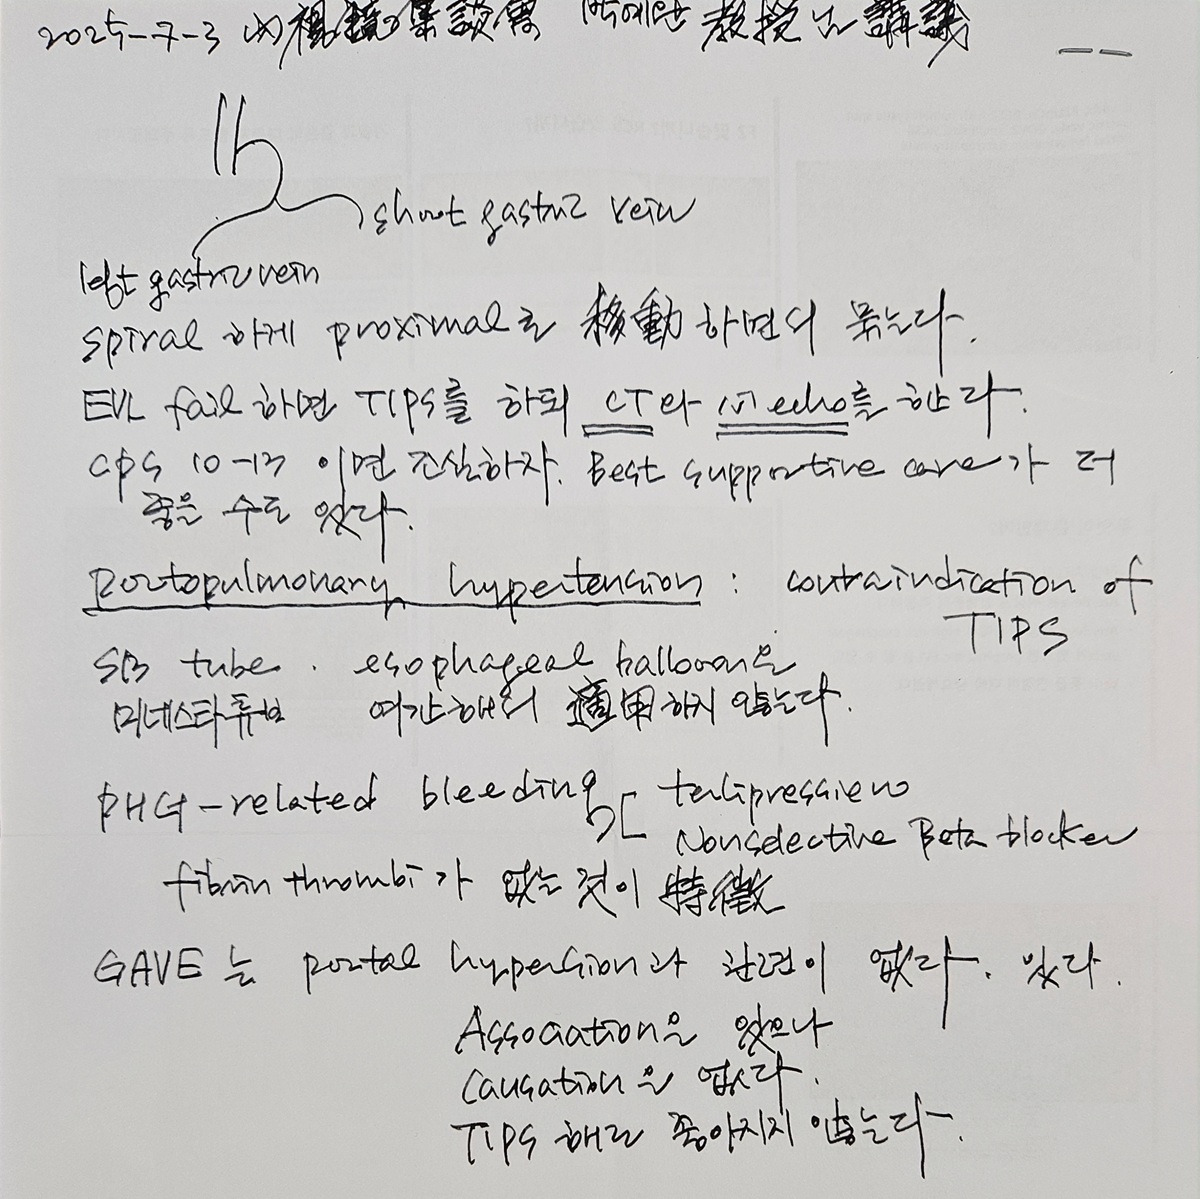 2025-7-3 內視鏡 集談會 박예완 敎授님 講議
short gastric vein
left gastric vein
spiral 하게 proximal로 移動하면서 묶는다.
EVL fail 하면 TIPS를 하되 CT와 심echo를 한다.
CPS 10-13 이면 조심하자. Best supportive care가 더
좋을 수도 있다.
portopulmonary hypertension : contraindication of
TIPS
SB tube . esophageal balloon은
미네스타튜브 여간해서 適用하지 않는다.
PHG-related bleeding
terlipressin
Nonselective Beta blocker
fibrin thrombi가 없는 것이 特徵
GAVE는 portal hypertension과 관련이 없다. 있다.
Association은 있으나
Causation은 없다.
TIPS 해도 좋아지지 않는다.